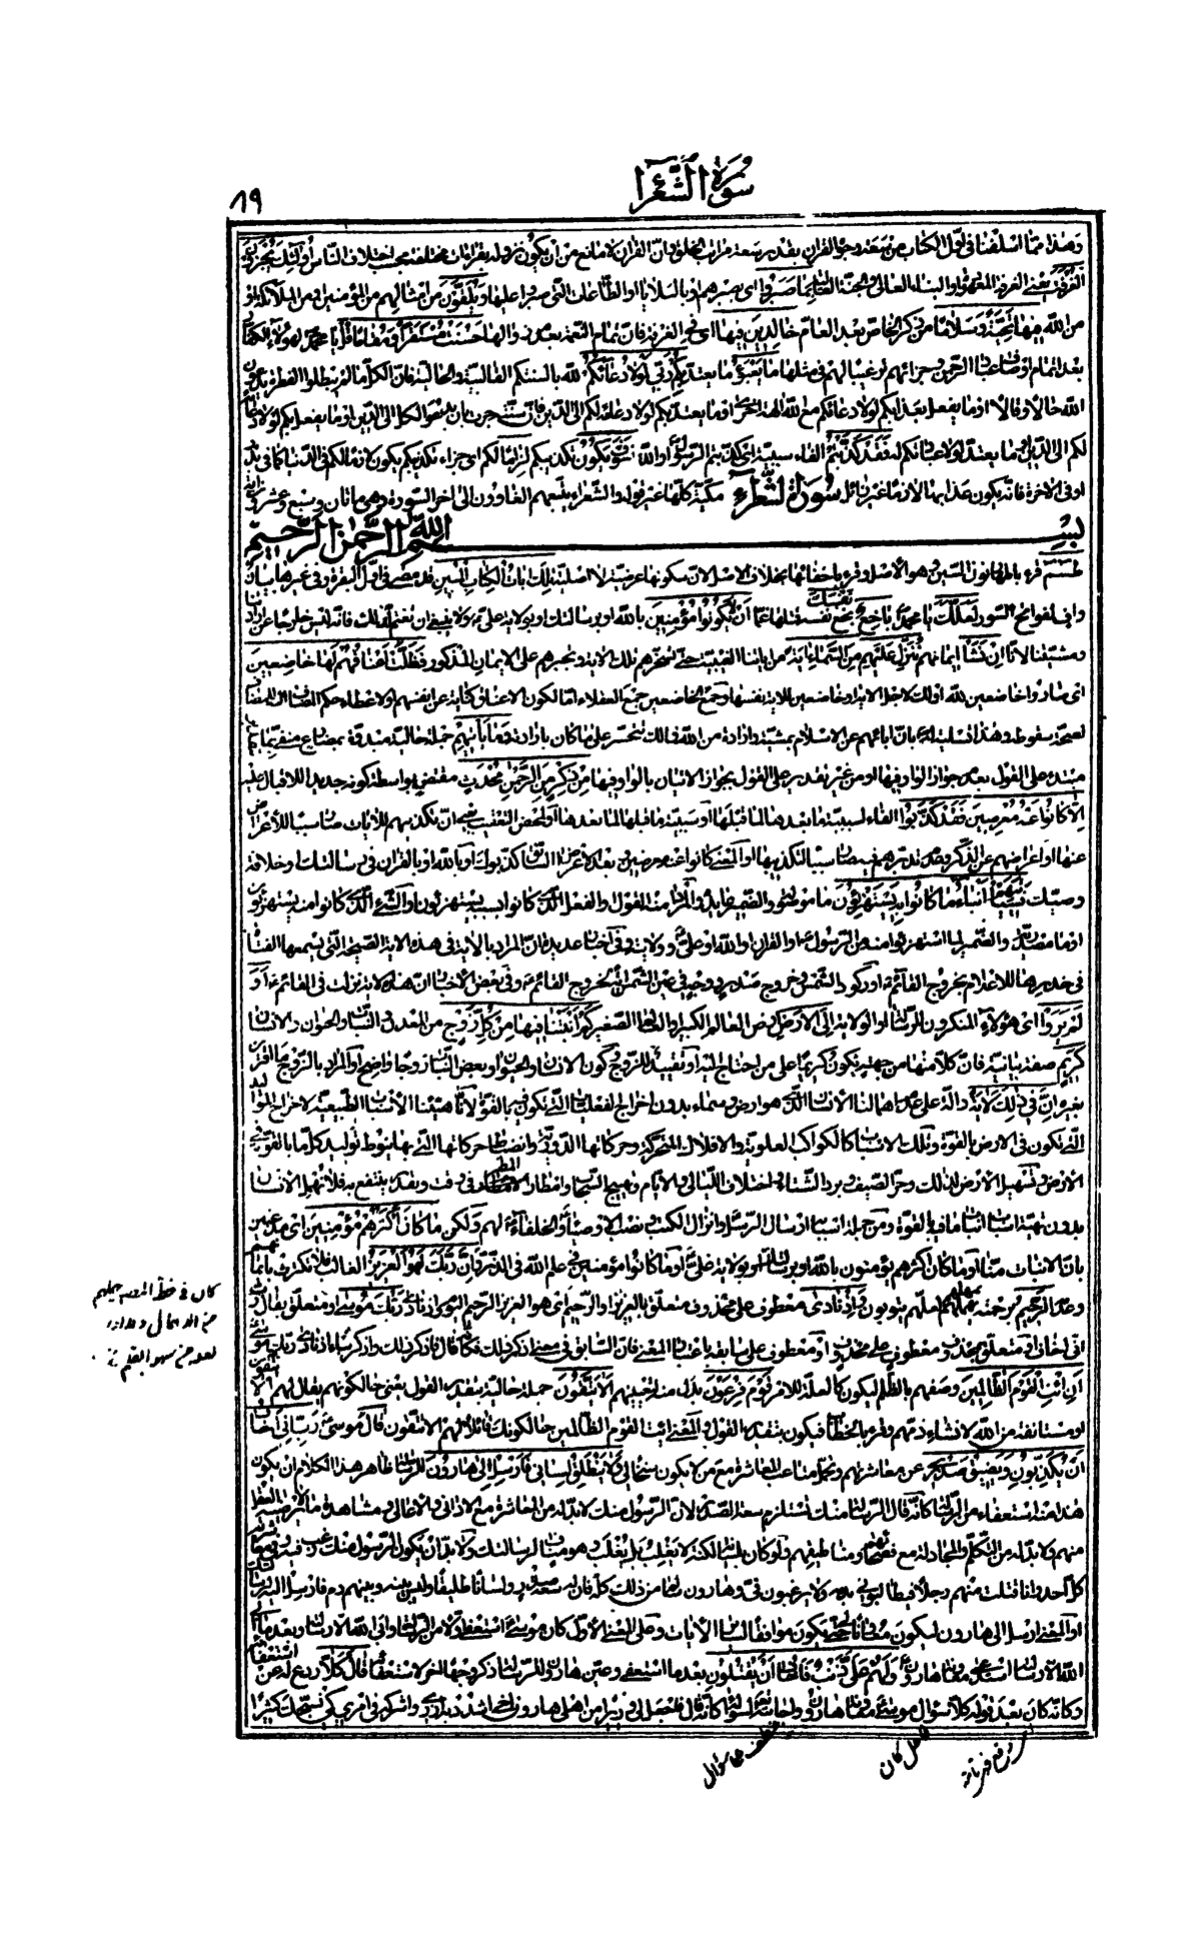 سورة الشعرا
١٩
وهذا مما اسلفنا فى اول الكتاب من سعة وجوه القران بقدر سعة مراتب الخلق بان القران لا مانع من ان يكون نزوله بقراءات مختلفة بحسب اختلاف الناس أولئك يجزون
الغرفة يعنى الغرفة المعهودة او البناء العالى فى الجنة العالية بما صبروا اى بصبرهم على البلايا او الطاعات التى صبروا عليها ويلقون من امثالهم من المؤمنين او من الملائكة او
من الله فيها تحية وسلاما من ذكر الخاص بعد العام خالدين فيها اى فى الغرفة فان تمام النعمة بعدم زوالها حسنت مستقرا ومقاما قل يا محمد لهؤلاء الكفار
بعد اتمام اوصاف عباد الرحمن وجزائهم ترغيبا لهم فى مثلها ما يعبؤ ما يعتد بكم ربى لولا دعاؤكم لله بالسنتكم القالبية والحالية فان الكل ما لم يبطلوا الفطرة يدعون
الله حالا وقالا او ما يفعل بعذابكم لولا دعائكم مع الله الها اخر او ما يعتد بكم لولا دعائه لكم الى الدين فان سنته جرت بان يدعو الكل الى الدين او ما يفعل بكم لولا دعائه
لكم الى الدين او ما يعتد لولا عبادتكم له فقد كذبتم الفاء سببية اى كذبتم الرسول او الله فسوف يكون تكذيبكم لزاما لكم اى جزاء تكذيبكم يكون لازما لكم فى الدنيا كما فى بدر
او فى الاخرة فانه يكون عذابها لازما غير زائل سورة الشعراء مكية كلها غير قوله والشعراء يتبعهم الغاوون الى اخر السورة وهى مائتان وسبع وعشرون اية
بسم الله الرحمن الرحيم
طسم قرء باظهار نون السين وهو الاصل وقرء باخفائها بخلاف الاصل لان سكونها عرضية لا اصلية تلك ايات الكتاب المبين قد مضى فى اول البقرة وفى غيرها بيان
واف لفواتح السور لعلك يا محمد باخع نفسك بخع نفسه قتلها غما ان لا يكونوا مؤمنين بالله او برسالتك او بولاية على ولا ينبغى ان تغتم لذلك فانه ليس خارجا عن ارادتنا
ومشيتنا لانا ان نشأ ايمانهم ننزل عليهم من السماء اية من اياتنا الغيبية حتى نسخرهم بتلك الاية ونجبرهم على الايمان المذكور فظلت اعناقهم لها خاضعين
اى صاروا خاضعين لله اولك لاجل الاية او خاضعين للاية نفسها وجمع الخاضعين جمع العقلاء اما لكون الاعناق كناية عن انفسهم او لاعطاء حكم المضاف اليه للمضاف
لصحة سقوطه وهذا تسلية له بان ابائهم عن الاسلام بمشية وارادة من الله فما لك تتحسر على ما كان بارادة منا وما يأتيهم جملة حالية مبدوة بمضارع منفى بما
مبتدء على القول بعدم جواز الواو فيها او من غير تقدير على القول بجواز الاتيان بالواو فيها من ذكر من الرحمن محدث مقتض بواسطة كونه جديدا للاقبال عليه
الا كانوا عنه معرضين فقد كذبوا الفاء لسببية ما بعدها لما قبلها او سببية ما قبلها لما بعدها او لمحض التعقيب يعنى ان تكذيبهم للايات صار سببا للاعراض
عنها او اعراضهم عن الذكر وعدم تدبرهم فيه صار سببا لتكذيبها او المعنى كانوا عنه معرضين وبعد الاعراض السابق كذبوك او بالله او بالقران فى رسالتك او خلافة
وصيك فسيأتيهم انباء ما كانوا به يستهزؤن ما موصولة والضمير عايد والمراد منه القول والفعل الذى كانوا بسببه يستهزئون او الشىء الذى كانوا منه يستهزئون
او ما مصدرية والضمير لما استهزؤا منه من الرسول او القران او الله او على وولايته وفى اخبار عديدة ان المراد بالاية فى هذه الاية الصيحة التى يسمعها الفتاة
فى خدرها للاعلام بخروج القائم او ركود الشمس وخروج صدر ووجه فى عين الشمس لخروج القائم وفى بعض الاخبار ان هذه الاية نزلت فى القائم او
لم يروا اى هؤلاء المنكرون للرسالة او الولاية الى الارض ارض العالم الكبير او العالم الصغير كم انبتنا فيها من كل زوج من المعدن والنبات والحيوان والانسان
كريم صفة بيانية فان كلا منها من جهة يكون كريما على من احتاج اليه او تقييد للزوج وكون الانسان والحيوان وبعض النبات زوجا واضح او المراد بالزوج ما اقترن
بغيره ان فى ذلك لاية دالة على عدم اهمالنا الانسان الذى هو ارض وسماء بدون اخراج الفعليات التى تكون فيه بالقوة لانا هيئنا الاسباب الطبيعية لاخراج المواليد
التى تكون فى الارض بالقوة وتلك الاسباب كالكواكب العلوية والافلاك المتحركة وحركاتها الدورية وانضباط حركاتها التى بها ينوط توليد كل ما بالقوة فى
الارض وتسهيل الارض لذلك وحر الصيف وبرد الشتاء واختلاف الليالى والايام وتهييج السحاب وامطار الامطار فى وقت وبقدر ينتفع به فلا نهمل الانسان
بدون تهية اسباب انبات ما فيه بالقوة ومن جملة اسبابه ارسال الرسل وانزال الكتب ونصب الاوصياء والخلفاء لهم ولكن ما كان اكثرهم مؤمنين اى مذعنين
بان الانبات منا او ما كان اكثرهم يؤمنون بالله او برسالتك او بولاية على او ما كانوا مؤمنين فى علم الله فى الذر وان ربك لهو العزيز الغالب فلا تكترث بانهم
وعد الرحيم برحمته يمهلهم لعلهم يتوبون واذ نادى معطوف على محذوف متعلق بالعزيز او الرحيم اى هو العزيز الرحيم اليوم واذ نادى ربك موسى او متعلق بقال رب
انى اخاف او متعلق بمحذوف معطوف على محذوف او معطوف على سابقه باعتبار المعنى فان السابق فى معنى اذكر ذلك فكانه قال فاذكر ذلك واذكر اذ نادى ربك موسى
ان ائت القوم الظالمين وصفهم بالظلم ليكون كالعلة للامر قوم فرعون بدل منه لتعيينهم الا يتقون جملة حالية بتقدير القول يعنى حالكونهم يقال لهم الا يتقون
او مستانفة من الله لانشاء ذمهم وقرء بالخطاب فيكون بتقدير القول والمعنى ائت القوم الظالمين حالكونك قائلا لهم الا تتقون قال موسى رب انى اخاف
ان يكذبون ويضيق صدرى عن معاشرتهم وتحمل متاعب المعاشرة مع من لا يكون سنخالى ولا ينطلق لسانى فارسل الى هارون للرسالة ظاهر هذا الكلام ان يكون
هذا منه استعفاء من الرسالة كانه قال الرسالة منك تستلزم سعة الصدر لان الرسول منك لا بد له من المعاشرة مع الادانى والاعالى ومشاهدة ما لا يرضيه
منهم ولا بد له من التكلم والمجادلة مع فصحائهم ومناطيقهم ولو كان بلسانه لكنة لا يغلب بل يغلب وهو مناف لرسالتك ولا بد ان يكون الرسول منك
كل احد وانا قتلت منهم رجلا فيطالبونى بدمه ولا يرغبون فى وهارون برىء من ذلك كله فان له سعة صدر ولسانا طليقا وليس بينه وبينهم دم فارسل اليه
او المعنى ارسل الى هارون ليكون معى معاونا لى حتى يكون موافقا لسائر الايات وعلى المعنى الاول كان موسى استعفى اولا من الرسالة
الله الا رسالته استدعى معاونة هارون ولهم على ذنب فاخاف ان يقتلون بعد ما استعفى وعين هارون للرسالة ذكر وجها اخر لاستعفائه قال كلا ردع له عن
وكانه كان بعد قوله كلا سؤال موسى معاونة هارون واجابة سؤله كانه قال فاجعل لى وزيرا من اهلى هارون اخى اشدد به ازرى واشركه فى امرى كى نسبحك كثيرا